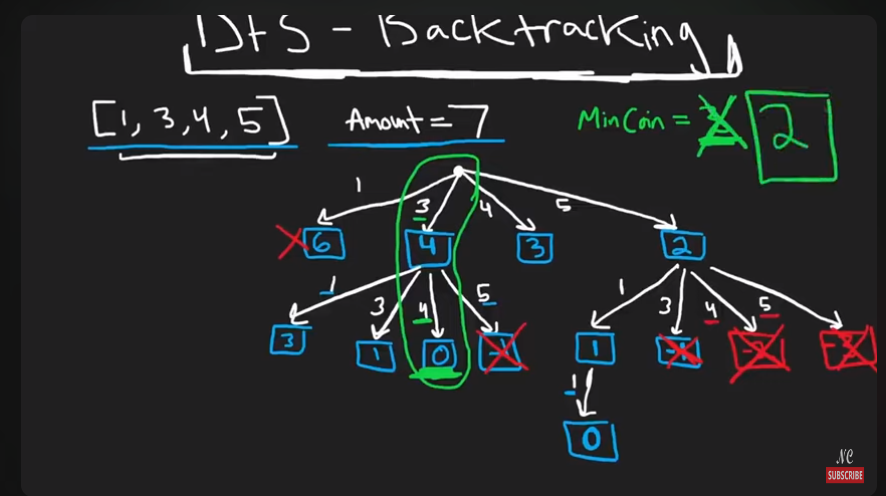 DFS - Backtracking
[1, 3, 4, 5] Amount = 7 MinCoin = 2
1 3 4 5
6 4 3 2
1 3 4 5 1 3 4 5
3 1 0 -1 1 -1 -2 -3
1
0
NC
SUBSCRIBE